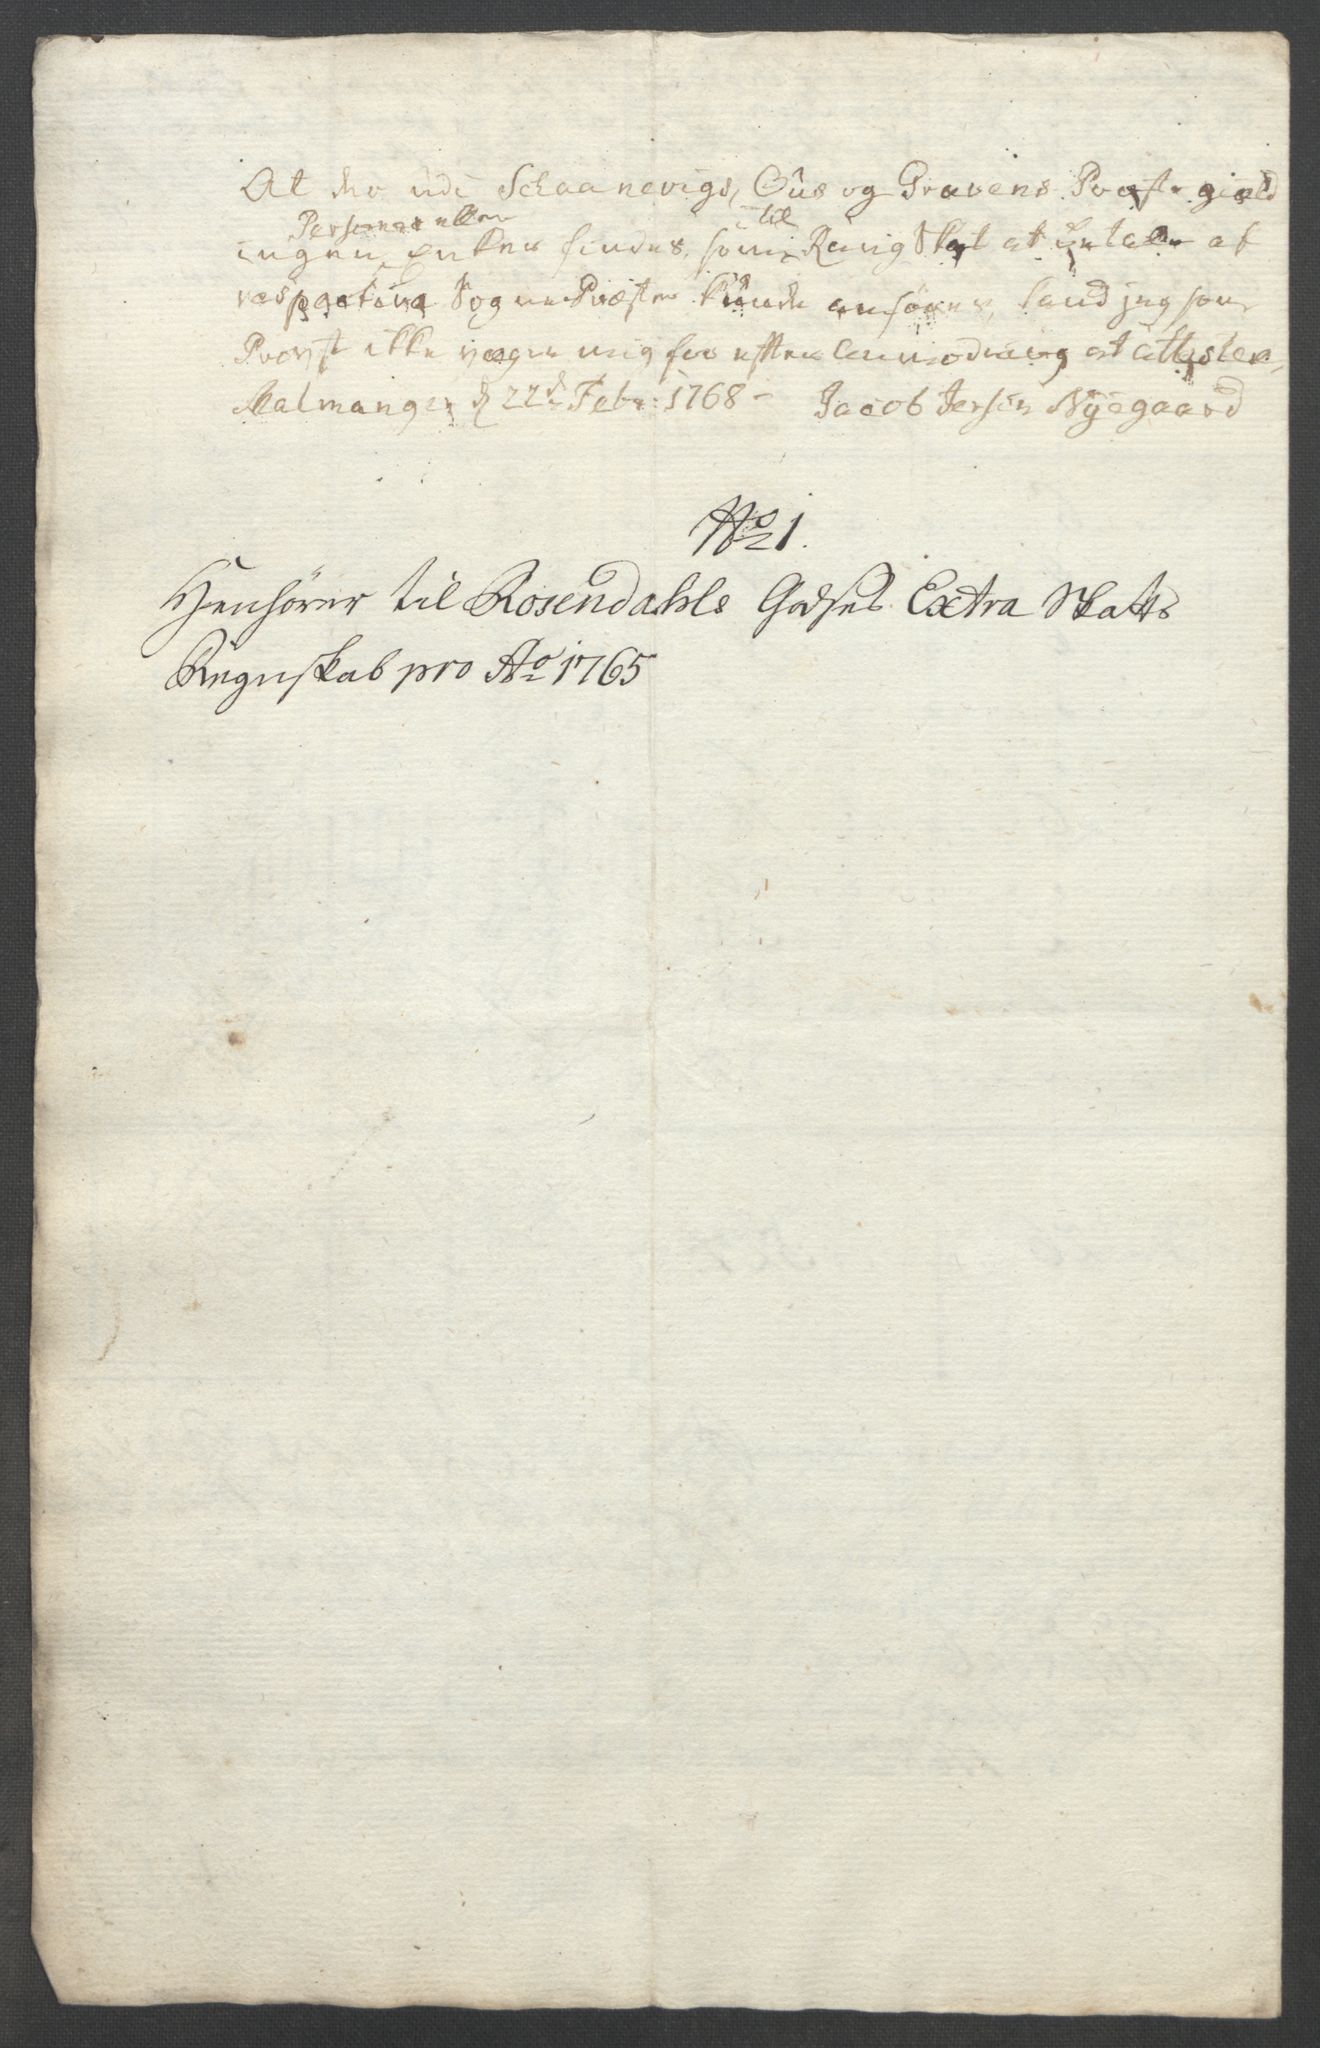 At der udi Schaanevigs, Ous og Gravens Præstegield
ingen Personer eller Enker findes, som til Rang Skat at betale af
respective Sogne Præster kunde anføres, kand jeg som
Provst ikke vægre mig for efter anmodning at attestere,
Malmanger d 22de Febr: 1768 - Jacob Jersin Nyegaard
No 1.
Henhører til Rosendahls Godses Extra Skatts
Regnskab pro Ao 1765